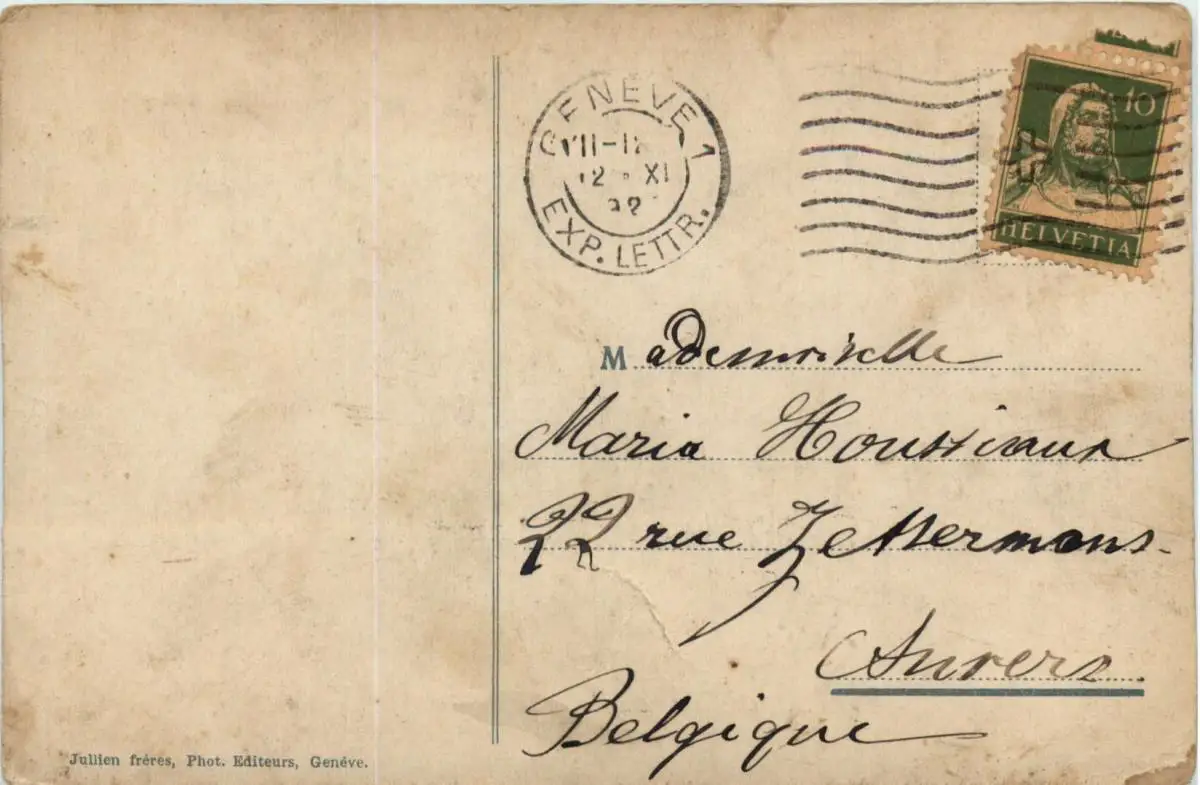 GENÈVE 1
VII-12
12 · XI
22
EXP. LETTR.
10
HELVETIA
Mademoiselle
Maria Houssiaux
22 rue
Anvers
Belgique
Jullien fréres, Phot. Editeurs, Genéve.